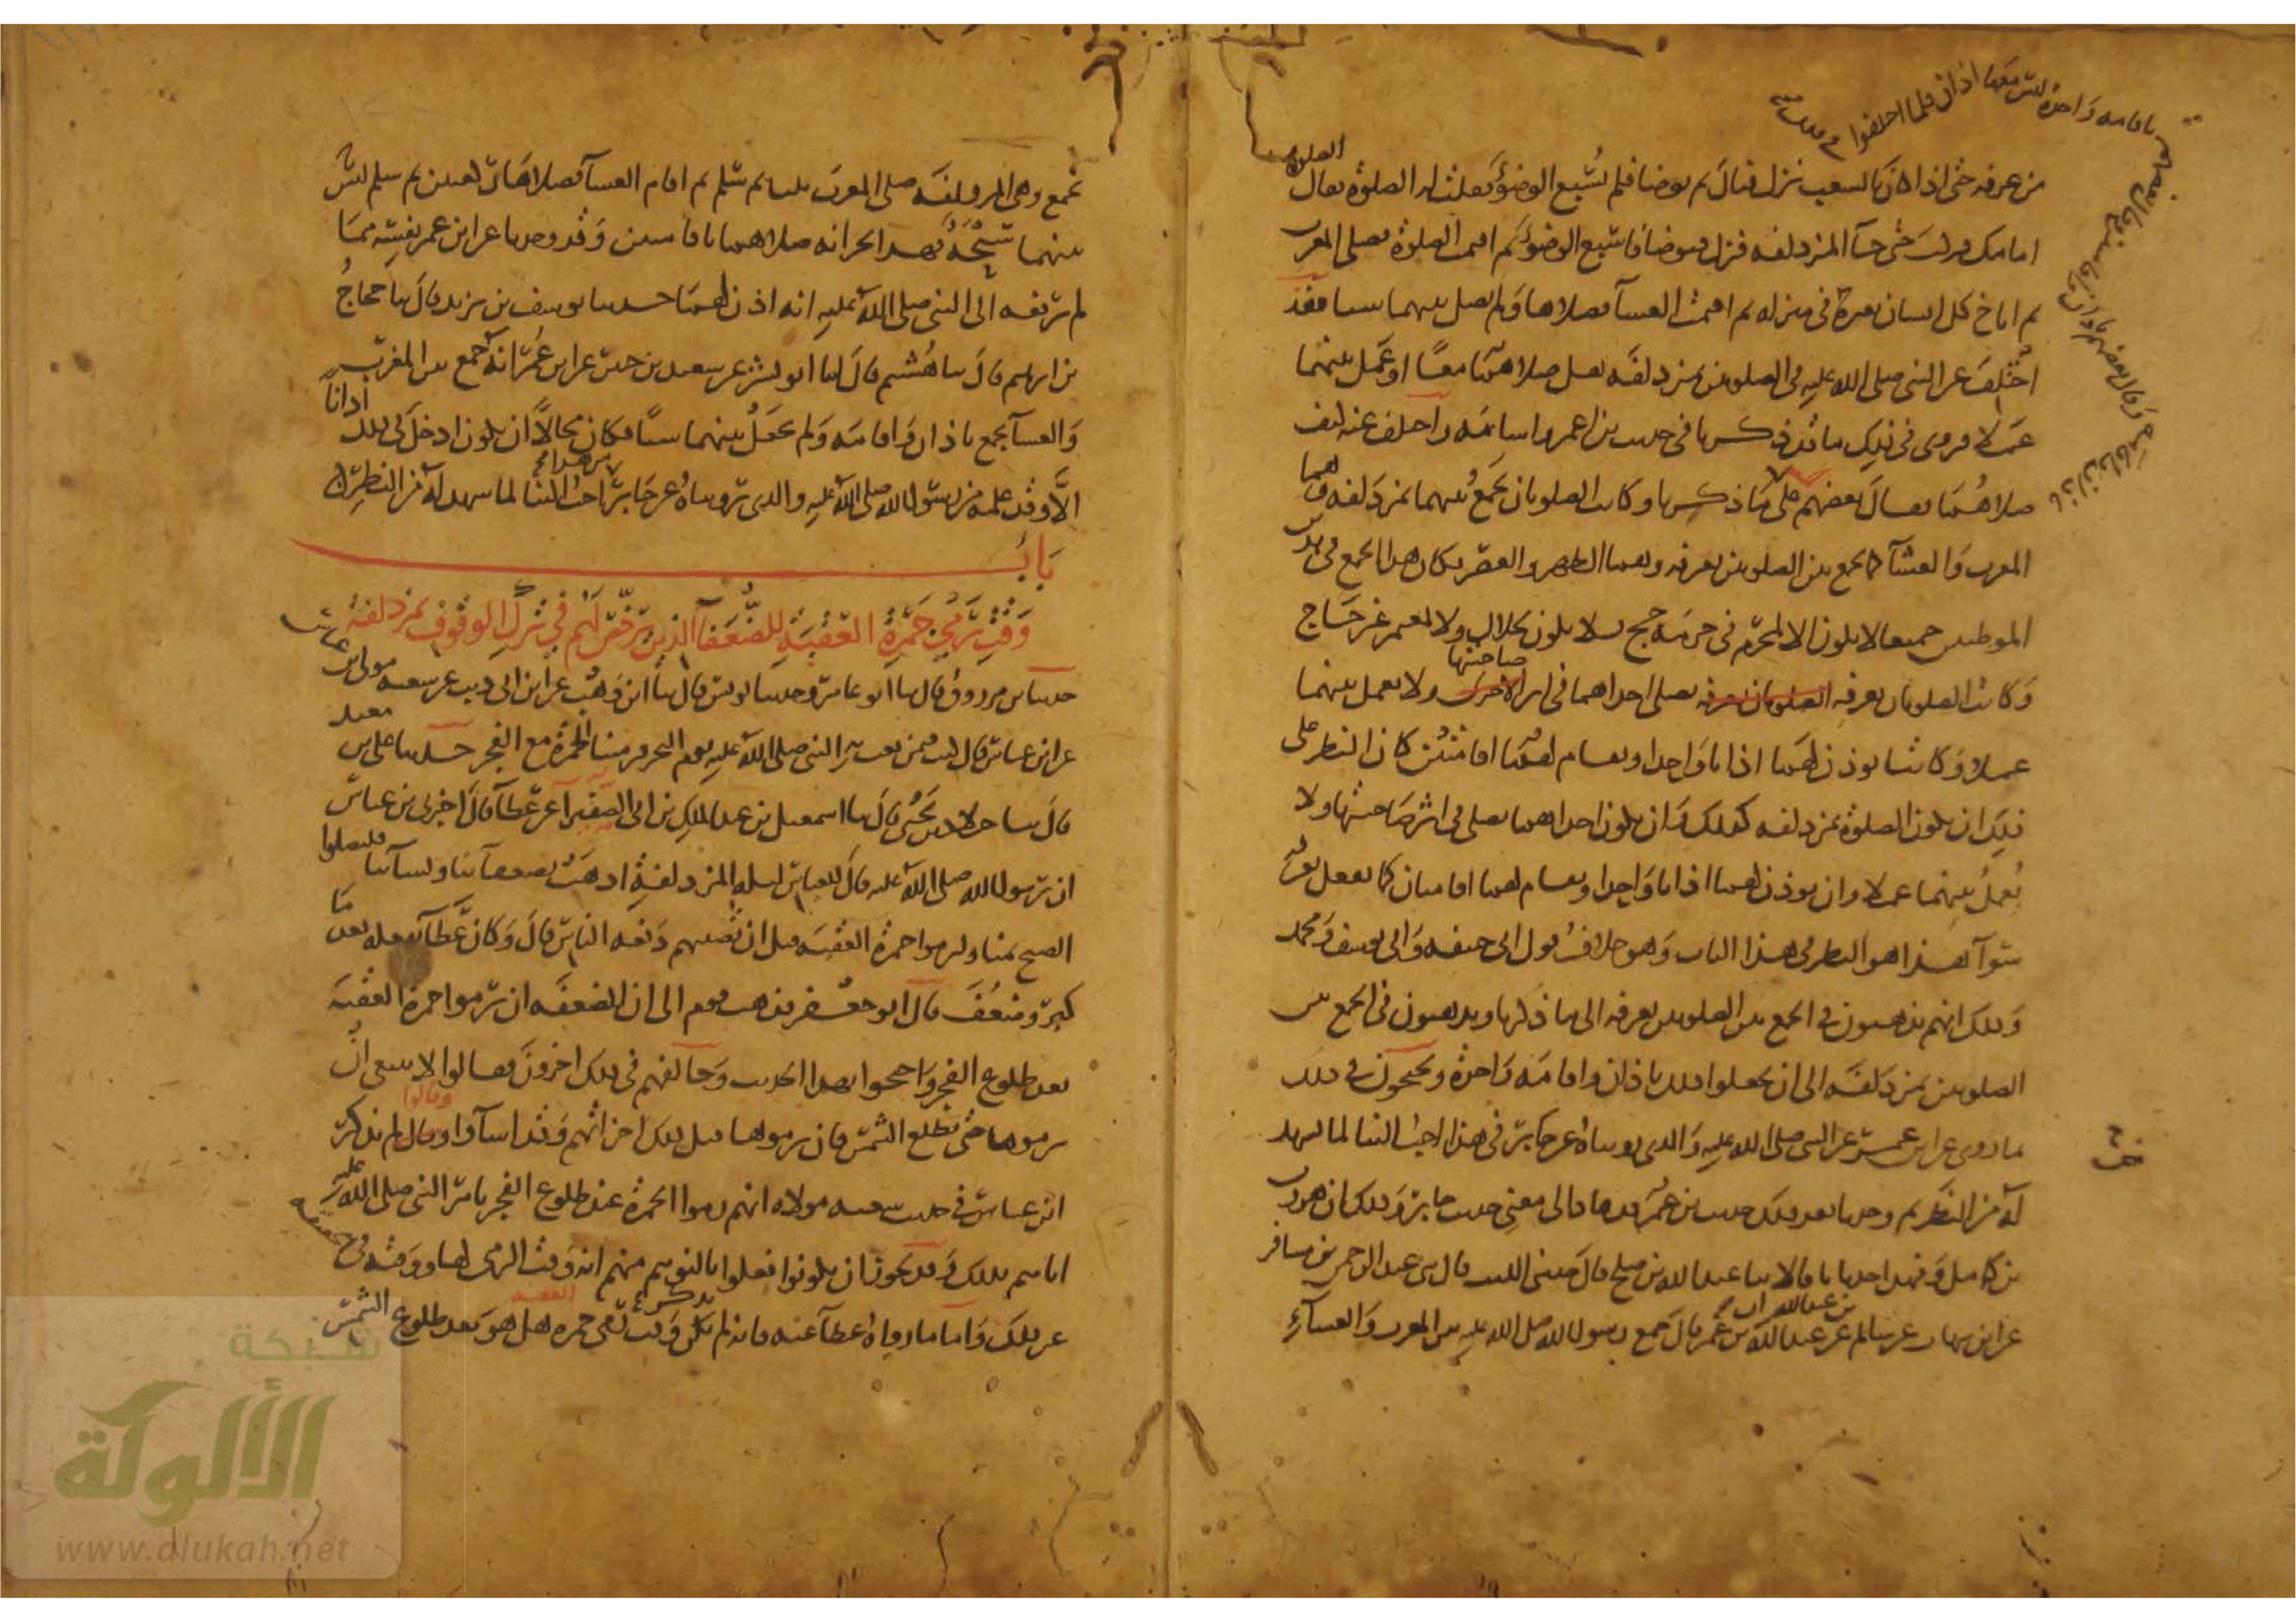 من عرفه حتى اذا كان بالشعب نزل فبال ثم توضا فلم يسبغ الوضوء فقلت له الصلوة فقال الصلوة
امامك فركب حتى جآ المزدلفه فنزل فتوضا فاسبغ الوضوء ثم اقيمت الصلوة فصلى المغرب
ثم اناخ كل انسان بعيره في منزله ثم اقيمت العشآ فصلاها ولم يصل بينهما شيا فقد
اختلف عن النبي صلى الله عليه في الصلوتين بمزدلفه هل صلاهما معا او عمل بينهما
عملا فروى في ذلك ما قد ذكرنا في حديث ابن عمر واسامه واختلف عنه كيف
صلاهما فقال بعضهم على ما ذكرنا وكانت الصلوتان يجمع بينهما بمزدلفه وهما
باذان واقامه وقال بعضهم باذان واقامتين وقال بعضهم
باقامه واحده ليس معها اذان فلما اختلفوا في ذلك
المغرب والعشآ كما يجمع بين الصلوتين بعرفه وهما الظهر والعصر فكان هذا الجمع في هذين
الموطنين جميعا لا يكون الا لمحرم في حرمه حج ولا يكون لحلال ولا لمعتمر غير حاج
وكانت الصلوتان بعرفه تصلى احداهما في اثر صاحبتها ولا يعمل بينهما
عملا وكانتا يوذن لهما اذانا واحدا ويقام لهما اقامتين كان النظر على
ذلك ان يكون الصلوة بمزدلفه كذلك وان يكون احداهما تصلى في اثر صاحبتها ولا
يعمل بينهما عملا وان يوذن لهما اذانا واحدا ويقام لهما اقامتان كما يفعل بعرفه
سوآ هذا هو النظر في هذا الباب وهو خلاف قول ابي حنيفه وابي يوسف ومحمد
وذلك انهم يذهبون في الجمع بين الصلوتين بعرفه الى ما ذكرنا ويذهبون في الجمع بين
الصلوتين بمزدلفه الى ان يجعلوا ذلك باذان واقامه واحدة ويحتجون في ذلك
بما روى عن ابن عمر عن النبي صلى الله عليه والذي رويناه عن جابر في هذا احب الينا لما شهد
له من النظر ثم وجدنا بعد ذلك حديث ابن عمر قد عاد الى معنى حديث جابر وذلك ان هرون
بن كامل وفهدا حدثانا قالا ثنا عبد الله بن صلح قال حدثني الليث قال ثني عبد الرحمن بن مسافر
عن ابن شهاب عن سالم بن عبد الله ان عبد الله بن عمر قال جمع رسول الله صلى الله عليه بين المغرب والعشآء
بجمع وهي المزدلفه صلى المغرب ثلثا ثم سلم ثم اقام العشآ فصلاها ركعتين ثم سلم ليس
بينهما سبحة فهذا يخبر انه صلاهما باقامتين وقد وجدنا عن ابن عمر نفسه مما
لم يرفعه الى النبي صلى الله عليه انه اذن لهما حدثنا يوسف بن يزيد قال ثنا حجاج
بن ابرهيم قال ثنا هشيم قال انا ابو بشر عن سعيد بن جبير عن ابن عمر انه جمع بين المغرب
والعشآ بجمع باذان واقامه ولم يجعل بينهما شيا فكان محالا ان يكون ادخل في ذلك اذانا
الا وقد علمه من رسول الله صلى الله عليه والذي رويناه عن جابر من هذا احب الينا لما شهد له من النظر
باب
وقت رمي جمرة العقبة للضعفآ الذين يرخص لهم في ترك الوقوف بمزدلفة
حدثنا بن مرزوق قال ثنا ابو عامر وحدثنا يونس قال ثنا ابن وهب عن ابن ابي ذيب عن شعبه مولى ابن عباس
عن ابن عباس قال كنت فيمن بعث به النبي صلى الله عليه يوم النحر فرمينا الجمرة مع الفجر حدثنا علي بن معبد
قال ثنا خلاد بن يحيى قال ثنا اسمعيل بن عبد الملك بن ابي الصفيرا عن عطآ قال اخبرني بن عباس
ان رسول الله صلى الله عليه قال للعباس ليله المزدلفة اذهب بضعفآئنا ونسآئنا فليصلوا
الصبح بمنا وليرموا جمرة العقبه قبل ان تصيبهم دفعه الناس قال وكان عطآ يفعله بعد ما
كبر وضعف قال ابو جعفر فذهب قوم الى ان للضعفه ان يرموا جمرة العقبه
بعد طلوع الفجر واحتجوا بهذا الحديث وخالفهم في ذلك اخرون فقالوا لا ينبغي ان
يرموها حتى تطلع الشمس فان رموها قبل ذلك اجزاتهم وقد اسآوا وقالوا لم يذكر
ابن عباس في حديث شعبه مولاه انهم رموا الجمرة عند طلوع الفجر بامر النبي صلى الله عليه
اياهم بذلك وقد يجوز ان يكونوا فعلوا بالتوهم منهم انه وقت الرمي لها ووقته في الحقيقه
غير ذلك واما ما رواه عطآ عنه فانه لم يذكر وقت رمي جمره العقبه هل هو بعد طلوع الشمس
شبكة
الألوكة
www.alukah.net